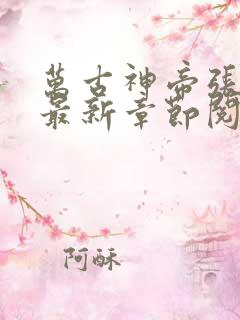 萬古神帝張
最新章節閱
阿酥